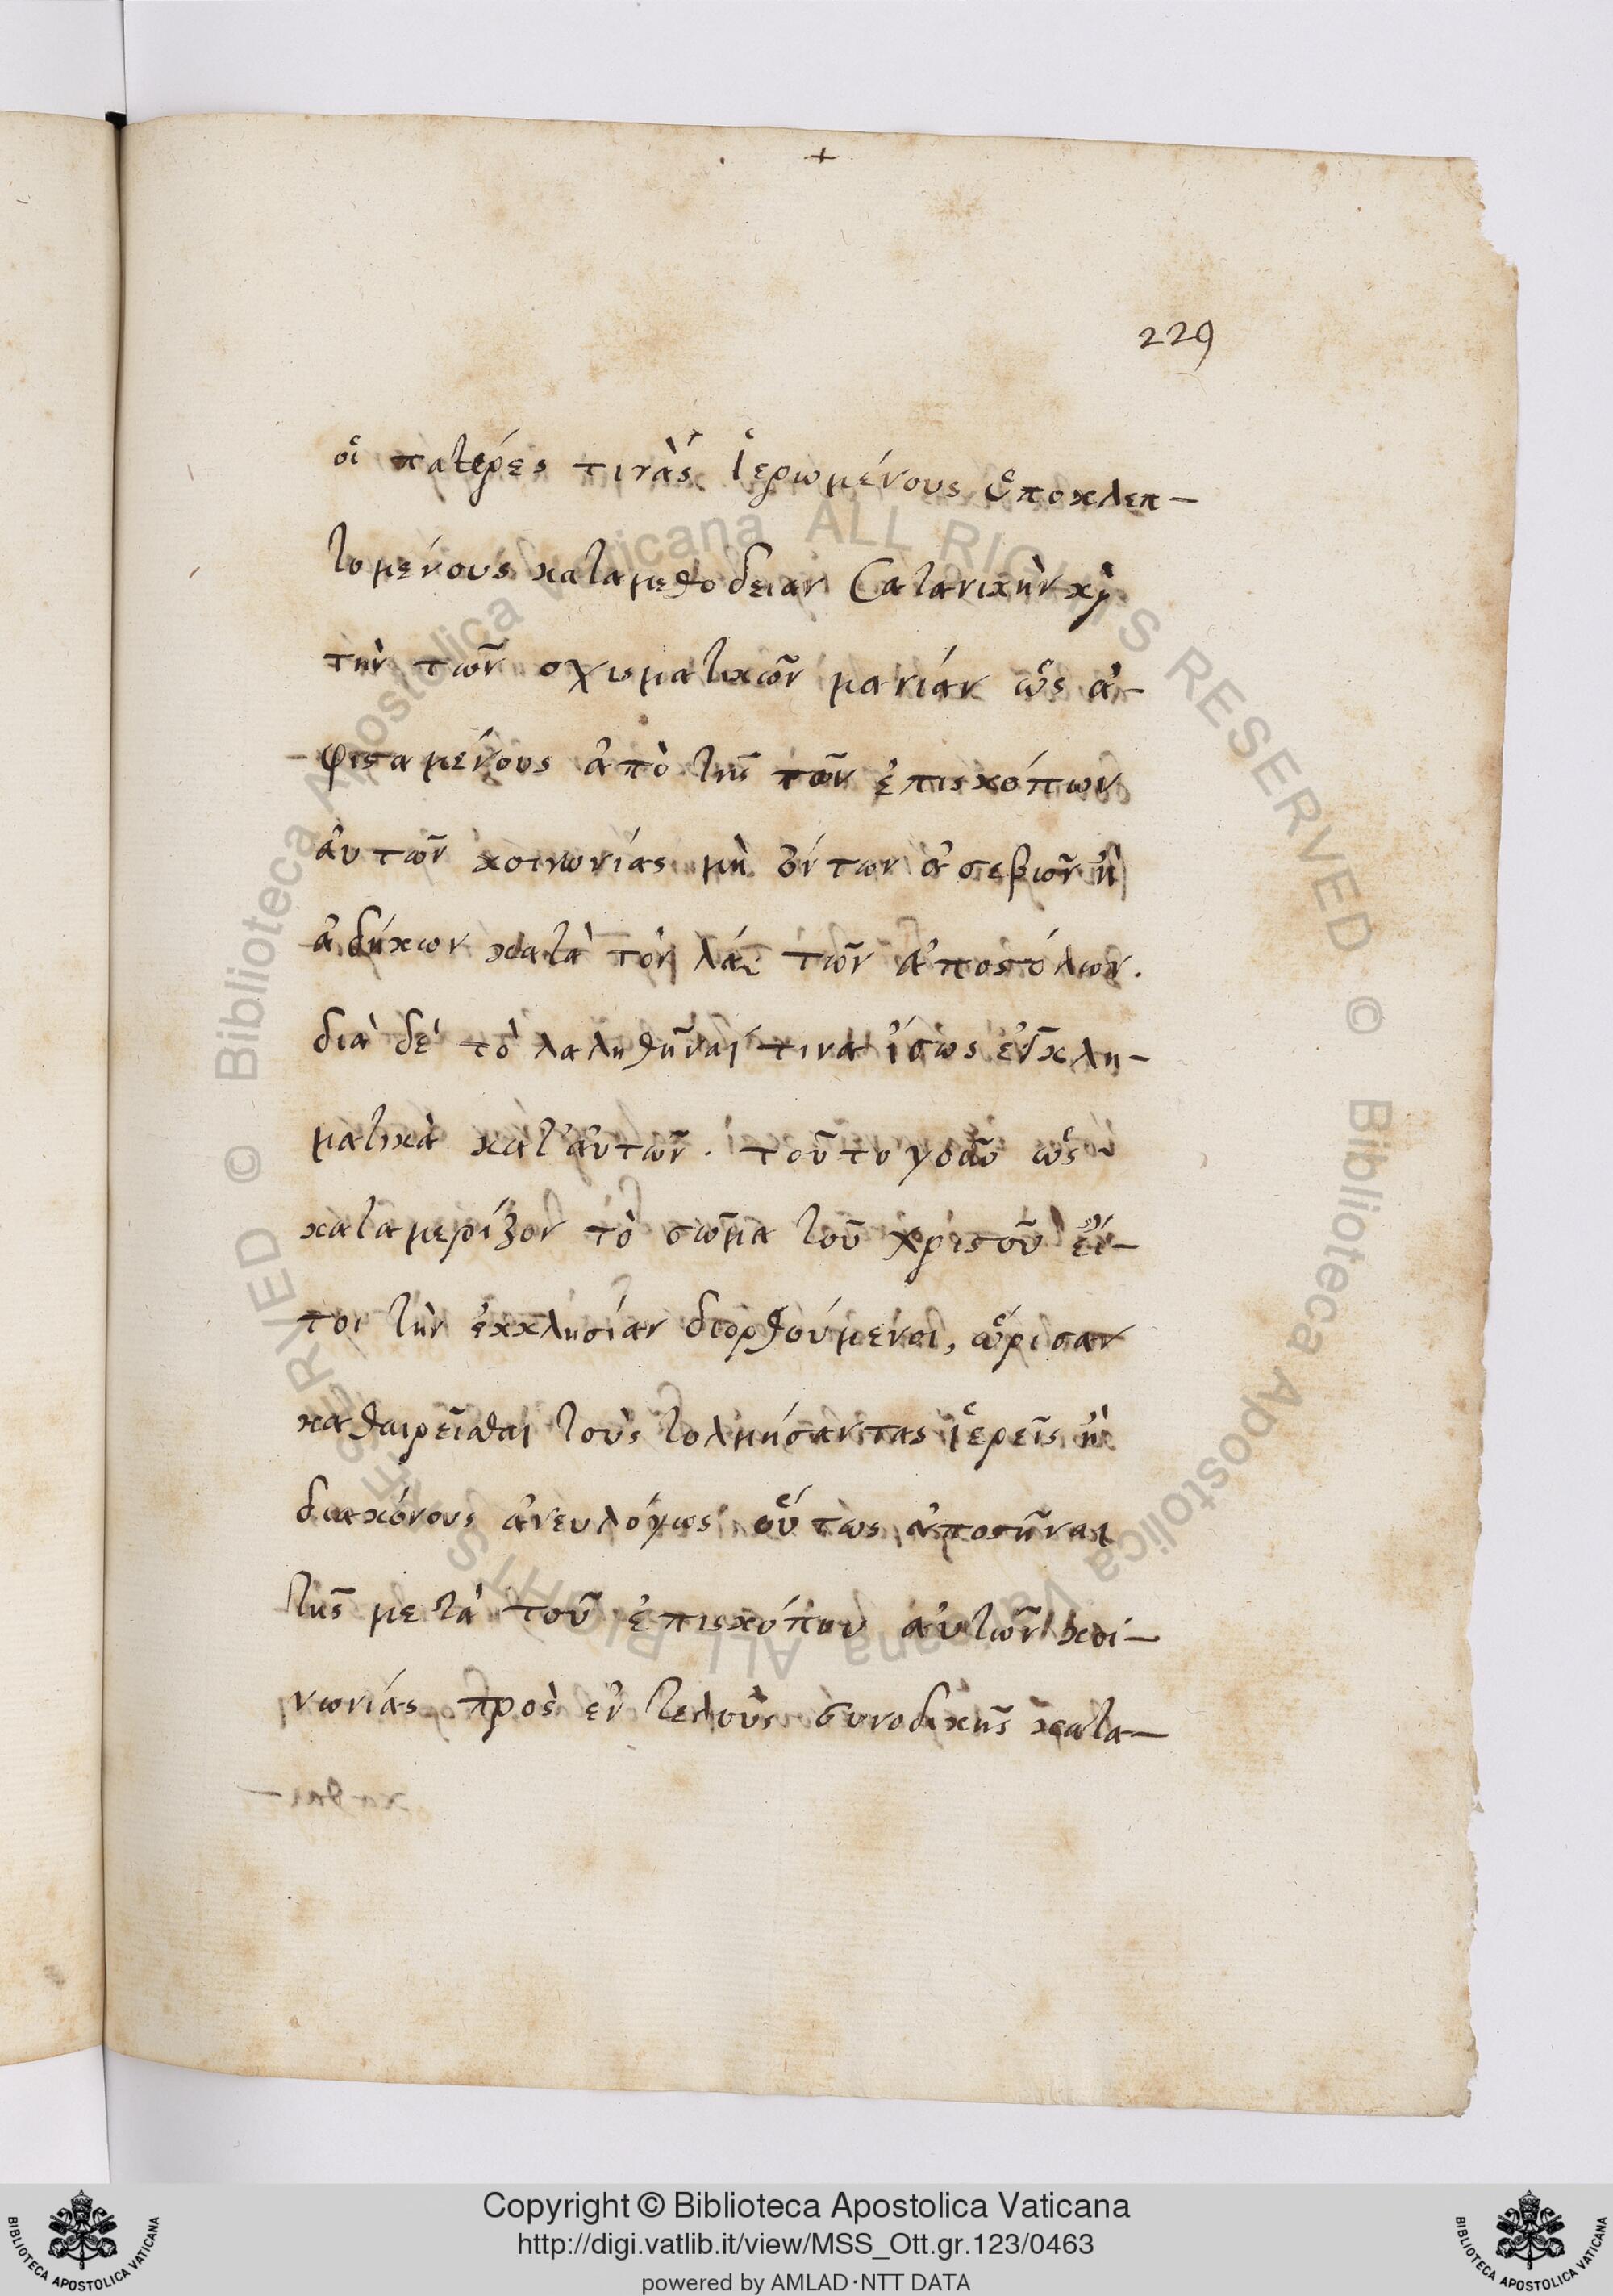 +
229
οἱ πατέρες τινὰς ἱερωμένους ὑποκλεπ-
τομένους καταμεθοδειαν σατανικὴν καὶ
τὴν τῶν σχισματικῶν μανίαν ὡς ἀ-
φισταμένους ἀπὸ τῆς τῶν ἐπισκόπων
αὐτῶν κοινωνίας μὴ ὄντων ἀσεβῶν ἢ
ἀδίκων κατὰ τὸν τῶν ἀποστόλων.
διὰ δὲ τὸ λαληθῆναί τινα ἴσως ἐνκλη-
ματικὰ κατ' αὐτῶν. τοῦτο ὡς
καταμερίζον τὸ σῶμα τοῦ χριστοῦ εἴ-
τοι τὴν ἐκκλησίαν διορθούμενοι, ὥρισαν
καθαιρεῖσθαι τοὺς τολμήσαντας ἱερεῖς ἢ
διακόνους ἀνευλόγως οὕτως ἀποστῆναι
τῆς μετὰ τοῦ ἐπισκόπου αὐτῶν κοι-
νωνίας πρὸς ἐντελοῦς συνοδικῆς κατα-
Copyright © Biblioteca Apostolica Vaticana
http://digi.vatlib.it/view/MSS_Ott.gr.123/0463
powered by AMLAD·NTT DATA
BIBLIOTECA APOSTOLICA VATICANA
BIBLIOTECA APOSTOLICA VATICANA
© Biblioteca Apostolica Vaticana ALL RIGHTS RESERVED
© Biblioteca Apostolica Vaticana ALL RIGHTS RESERVED